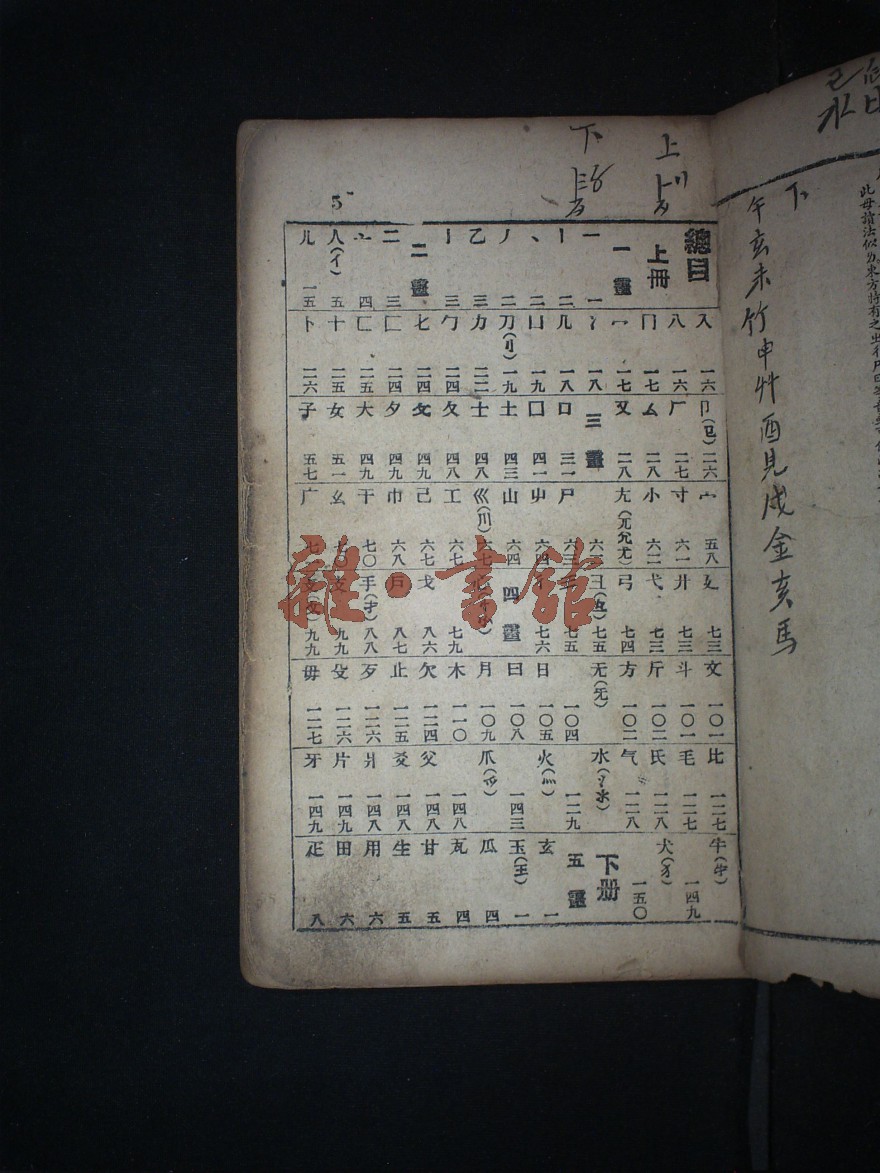 總目
上冊
一畫
一 一
丨 二
丶 二
丿 二
乙 三
亅 三
二畫
二 三
亠 四
人(亻) 五
儿 一五
入 一六
八 一六
冂 一七
冖 一七
冫 一八
几 一八
凵 一九
刀(刂) 一九
力 二二
勹 二四
匕 二四
匚 二四
匸 二五
十 二五
卜 二六
卩(㔾) 二六
厂 二七
厶 二八
又 二八
三畫
口 三一
囗 四一
土 四三
士 四八
夂 四八
夊 四九
夕 四九
大 四九
女 五一
子 五七
宀 五八
寸 六一
小 六二
尢(兀允尤) 六三
尸 六三
屮 六四
山 六四
巛(川) 六七
工 六七
己 六七
巾 六八
干 七〇
幺 七〇
广
廴 七三
廾 七三
弋 七三
弓 七四
彐(彑) 七五
七五
七六
四畫
七九
戈 八六
戶 八七
手(才) 八八
支 九九
攴(攵) 九九
文 一〇一
斗 一〇一
斤 一〇二
方 一〇二
无(旡) 一〇四
日 一〇五
曰 一〇八
月 一〇九
木 一一〇
欠 一二四
止 一二五
歹 一二六
殳 一二六
毋 一二七
比 一二七
毛 一二七
氏 一二八
气 一二八
水(氵氺) 一二九
火(灬) 一四三
爪(爫) 一四八
父 一四八
爻 一四八
爿 一四八
片 一四九
牙 一四九
牛(牜) 一四九
犬(犭) 一五〇
下冊
五畫
玄 一
玉(王) 一
瓜 四
瓦 四
甘 五
生 五
用 六
田 六
疋 八
5
上
下
下
午亥未竹申艸酉見戌金亥馬
雜·書館